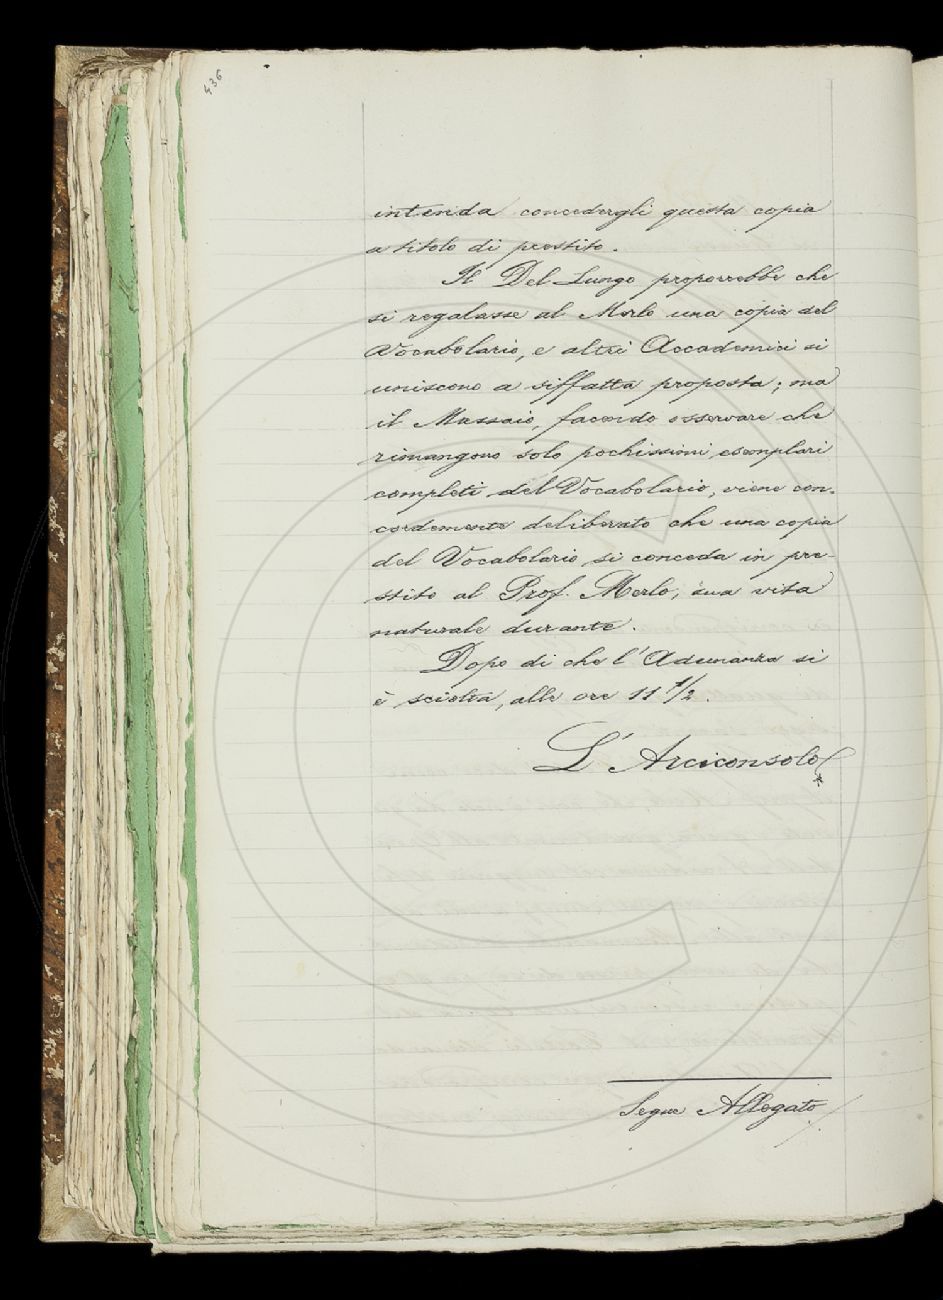 436
intenda concedergli questa copia
a titolo di prestito.
Il Del Lungo proporrebbe che
si regalasse al Merlo una copia del
Vocabolario, e altri Accademici si
uniscono a siffatta proposta; ma
il Massaio, facendo osservare che
rimangono solo pochissimi esemplari
completi del Vocabolario, viene con-
cordemente deliberato che una copia
del Vocabolario si conceda in pre-
stito al Prof. Merlo, sua vita
naturale durante.
Dopo di che l'Adunanza si
è sciolta, alle ore 11 1/2.
L'Arciconsolo
Segue Allegato